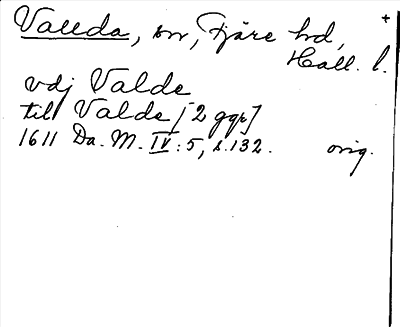 Vallda, sn, Fjäre hd, +
Hall. l.
vdj Valde
till Valde [2 ggr]
1611 Da. M. IV:5, s.132. orig.